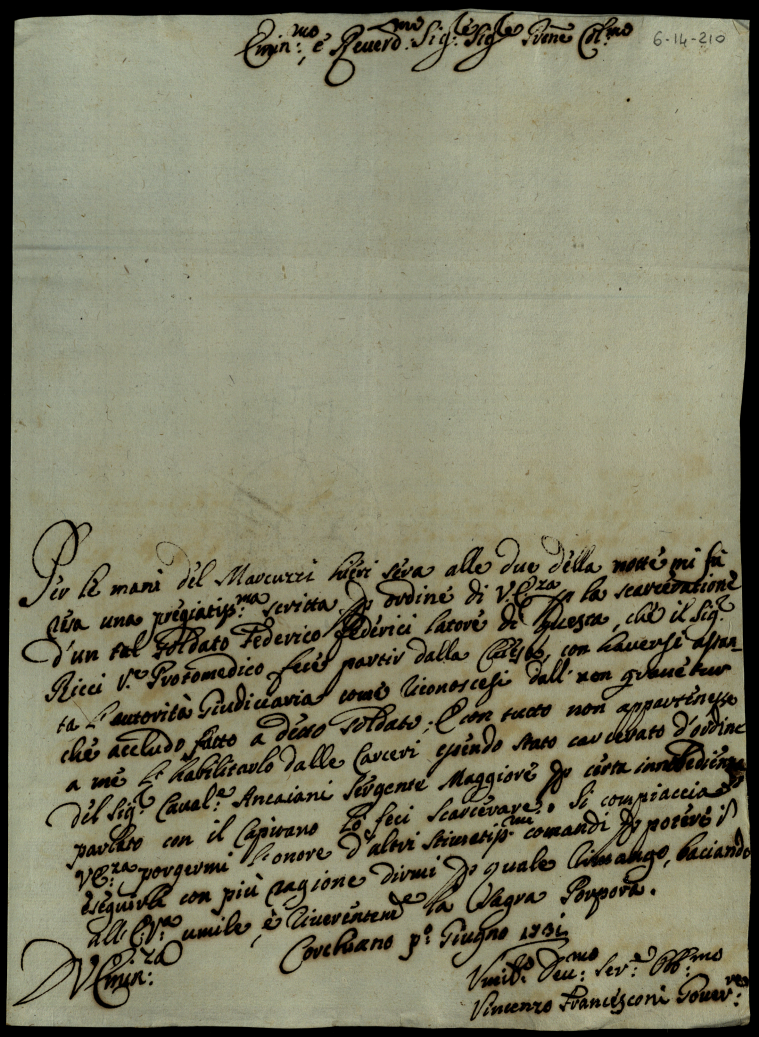 Emin:mo, e Reuerd:mo Sig:re Sig:re Prone Col:mo
6-14-210
Per le mani del Marcuzzi hieri sera alle due della notte mi fù
resa una pregiatiss:ma scritta d'ordine di V.E:za p la scarceratione
d'un tal Soldato Federico Federici latore di questa, che il Sig:re
Ricci V:e Protomedico fece partir dalla con haversi assun
ta l'autorità Giudiciaria come riconoscesi dall' non gravetur
che accludo fatto a detto Soldato; E con tutto non appartenesse
a me l'habilitarlo dalle Carceri essendo stato carcerato d'ordine
del Sig:re Caval:e Ancaiani Sergente Maggiore p certa innobedienza
parlato con il Capitano lo feci scarcerare. Si compiaccia
V.E:za porgermi l'honore d'altri stimatiss:mi comandi p potere
eseguirli con più ragione dirmi p quale rimango, baciando
all' E:V:a umile, è riverentem:e la Sagra Porpora.
Corchiano p:o Giugno 1731
D V Emin:za
Umil:o Deu:mo Ser:e Obb:mo
Vincenzo Francesconi Gouer:re